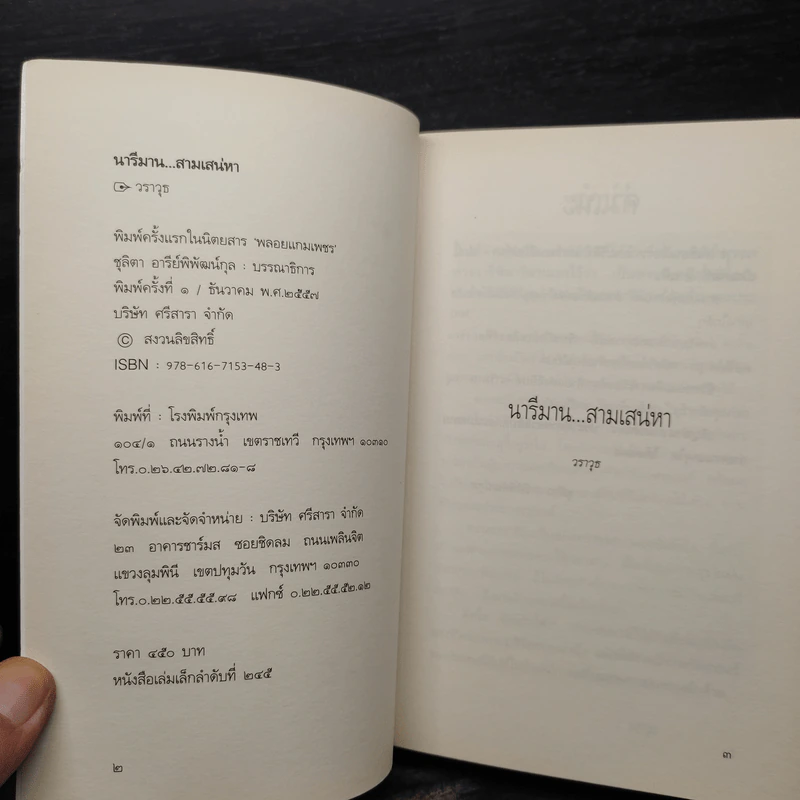 นารีมาน...สามเสน่หา
วราวุธ
พิมพ์ครั้งแรกในนิตยสาร 'พลอยแกมเพชร'
ชุลิตา อารีย์พิพัฒน์กุล : บรรณาธิการ
พิมพ์ครั้งที่ ๑ / ธันวาคม พ.ศ.๒๕๕๗
บริษัท ศรีสารา จำกัด
© สงวนลิขสิทธิ์
ISBN : 978-616-7153-48-3
พิมพ์ที่ : โรงพิมพ์กรุงเทพ
๑๐๔/๑ ถนนรางน้ำ เขตราชเทวี กรุงเทพฯ ๑๐๓๑๐
โทร.๐.๒๖.๔๒.๗๒.๘๑-๘
จัดพิมพ์และจัดจำหน่าย : บริษัท ศรีสารา จำกัด
๒๓ อาคารชาร์มส ซอยชิดลม ถนนเพลินจิต
แขวงลุมพินี เขตปทุมวัน กรุงเทพฯ ๑๐๓๓๐
โทร.๐.๒๒.๕๕.๕๕.๙๘ แฟกซ์ ๐.๒๒.๕๕.๕๒.๑๒
ราคา ๔๕๐ บาท
หนังสือเล่มเล็กลำดับที่ ๒๔๕
๒
นารีมาน...สามเสน่หา
วราวุธ
๓